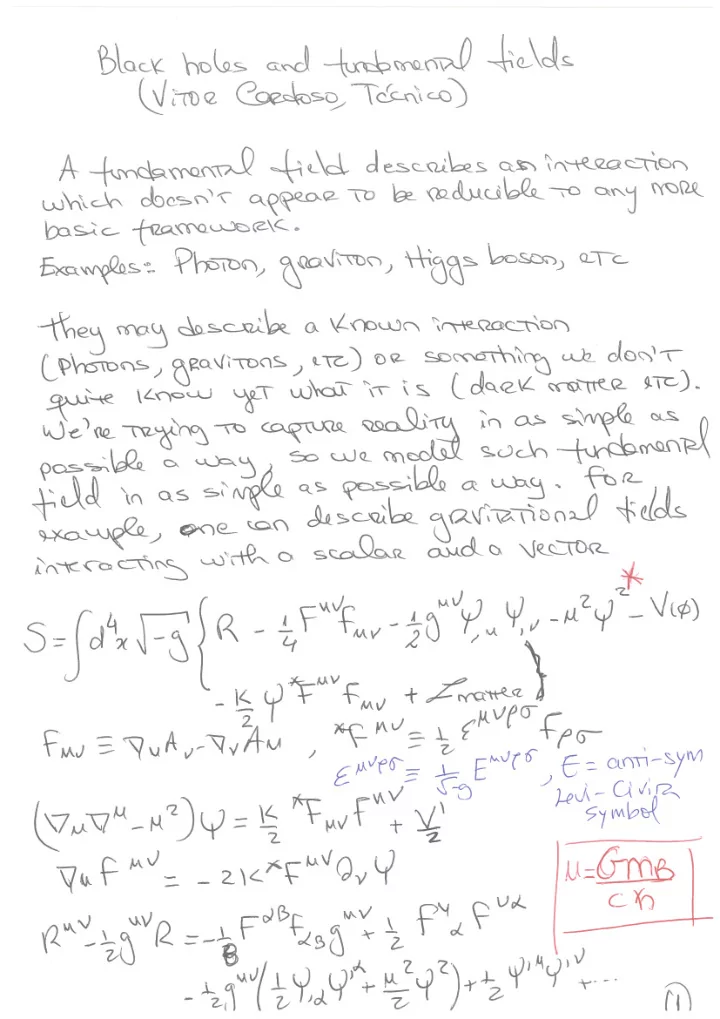 Black holes and fundamental fields
(Vitor Cardoso, Técnico)
A fundamental field describes an interaction
which doesn't appear to be reducible to any more
basic framework.
Examples: Photon, graviton, Higgs boson, etc
They may describe a known interaction
(photons, gravitons, etc) or something we don't
quite know yet what it is (dark matter etc).
We're trying to capture reality in as simple as
possible a way, so we model such fundamental
field in as simple as possible a way. For
example, one can describe gravitational fields
interacting with a scalar and a vector
S = ∫d⁴x √-g { R - 1/4 F^{μν} F_{μν} - 1/2 g^{μν} Ψ_{,μ} Ψ_{,ν} - μ²Ψ² * - V(φ)
- k/2 Ψ *F^{μν} F_{μν} + L_{matter} }
F_{μν} ≡ ∇_μ A_ν - ∇_ν A_μ , *F^{μν} ≡ 1/2 ε^{μνρσ} F_{ρσ}
ε^{μνρσ} ≡ 1/√-g E^{μνρσ} , E = anti-sym
Levi-Civita
symbol
(∇_μ ∇^μ - μ²) Ψ = k/2 *F_{μν} F^{μν} + V'/2
∇_μ F^{μν} = - 2k *F^{μν} ∂_ν Ψ
μ = G m_B / cħ
R^{μν} - 1/2 g^{μν} R = - 1/8 F^{αβ} F_{αβ} g^{μν} + 1/2 F^μ_α F^{να}
- 1/2 g^{μν} (1/2 Ψ_{,α} Ψ^{,α} + μ²/2 Ψ²) + 1/2 Ψ^{,μ} Ψ^{,ν} + ...
(1)